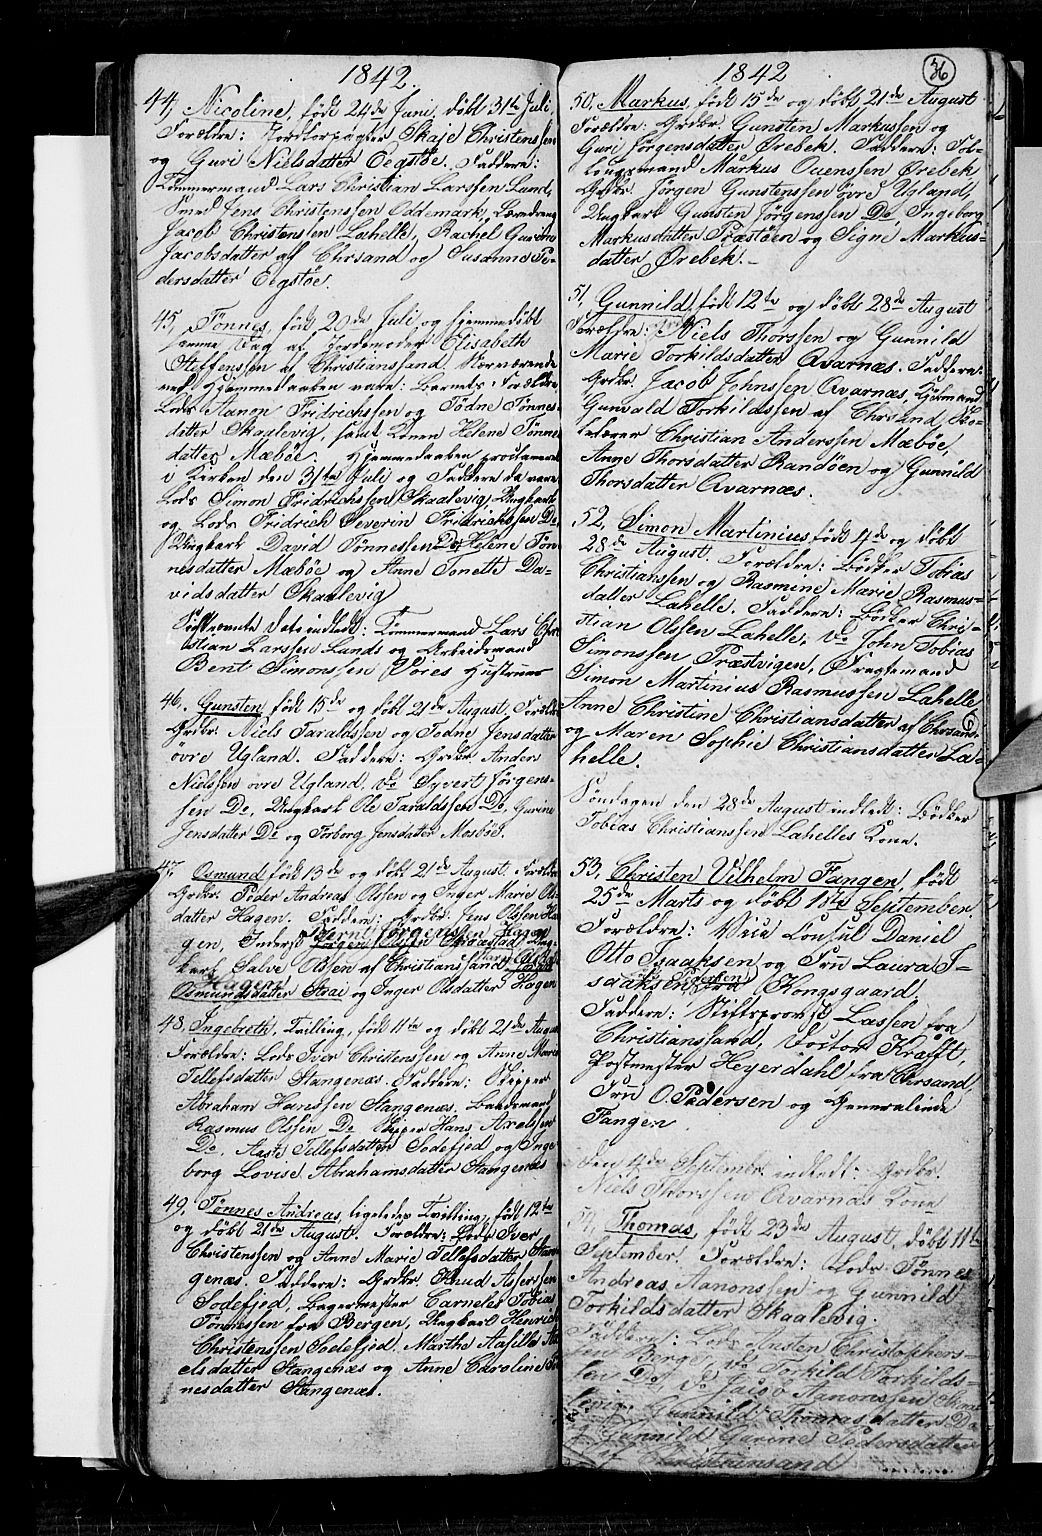 1842
44, Nicoline, født 24de Juni, døbt 31te Juli.
Forældre: Jordforpagter Skaje Christenssen
og Guri Nielsdatter Oegstøe. Faddere:
Tømmermand Lars Christian Larssen Lund,
Smed Jens Christenssen Oddemark, Læredreng
Jacob Christenssen Lahelle, Rachel Gurine
Jacobsdatter af Chrsand og Susanne Pe-
dersdatter Oegstøe.
45, Tønnes, født 20de Juli og hjemmedøbt
samme Dag af Jordemoder Elisabeth
Steffenssen af Christianssand. Nærværende
ved Hjemmedaaben vare: Barnets Forældre
Lods Aanon Fridrichssen og Tødne Tønnes-
datter Skaalevig, samt Konen Helene Tønnes-
datter Mæbøe. Hjemmedaaben proclameret
i Kirken den 31te Juli og Faddere da vare
Lods Simon Fridrichssen Skaalevig, Ungkarl
og Lods Fridrich Severin Fridrichssen Do
Ungkarl David Tønnessen Do, Helene Tøn-
nesdatter Mæbøe og Anne Tonette Da-
vidsdatter Skaalevig
Sidstnævnte Dato indledt: Tømmermand Lars Chri-
stian Larssen Lunds og Arbeidsmand
Bent Simonssen Vores Hustruer
46, Gunsten, født 15de og døbt 21de August. Forældre
Grdbr. Niels Taraldssen og Todne Jensdatter
øvre Ugland. Faddere: Grdbr. Anden
Nielssen øvre Ugland, do Syvert Jørgens-
sen Do, Ungkarl Ole Taraldssen Do, Gurine
Jensdatter Do og Torborg Jensdatter Mosbøe.
47, Osmund født 13de og døbt 21de August. Forældre
Grdbr. Peder Andreas Olssen og Inger Marie Ols-
datter Hagen. Faddere: Grdbr. Jens Olssen Ha-
Bernt Jørgenssen Hagen
gen, Inderst Jørgen Olssen Strøestad, Ung-
karl Salve Olssen af Christianssand,
Hagen
Osmundsdatter Strai og Inger Olsdatter Hagen
48, Ingebreth, Tvilling, født 11te og døbt 21de August
Forældre: Lods Iver Christenssen og Anne Marie
Tellefsdatter Stangenæs. Faddere: Skipper
Abraham Hanssen Stangenæs, Baadsmand
Rasmus Olssen Do Skipper Hans Axelssen
Do, Aaste Tellefsdatter Sodefjed og Inge-
borg Lovise Abrahamsdatter Stangenæs
49, Tønnes Andreas, ligeledes Tvilling, født 12te
og døbt 21de August. Forældre: Lods Iver
Christenssen og Anne Marie Tellefsdatter Stan-
genæs. Faddere: Grdbr. Knud Asserssen
Sodefjed, Bagermester Carneles Tobias
Tønnessen fra Bergen, Ungkarl Henrich
Christenssen Sodefjed, Marthe Aasille
elsdatter Stangenæs og Anne Caroline
nesdatter Stangenæs.
1842
36
50, Markus, født 15de og døbt 21de August
Forældre: Grdbr. Gunsten Markussen og
Guri Jørgensdatter Ørebek. Faddere: For-
Markus Ouenssen Ørebek
Grdbr. Jørgen Gunstenssen øvre Ugland,
Ungkarl Gunsten Jørgenssen Do, Ingeborg
Markusdatter Præstøen og Signe Markus-
datter Ørebek.
51, Gunnild, født 12te og døbt 28de August
Forældre: Niels Thorssen og Gunnild
Marie Torkildsdatter Qvarnæs. Faddere:
Grdbr. Jacob Johnssen Qvarnæs, Huusmand
Gunvald Torkildssen af Chrsand, Sko-
lelærer Christian Anderssen Mæbøe,
Anne Thorsdatter Randøen og Gunnild
Thorsdatter Qvarnæs.
52, Simon Martinius født 4de og døbt
28de August. Forældre: Bødker Tobias
Christianssen og Rasmine Marie Rasmus-
datter Lahelle. Faddere: Bødker Chri-
stian Olssen Lahelle, do John Tobias
Simonssen Præstvigen, Dragsemand
Simon Martinius Rasmussen Lahelle,
Anne Christine Christiansdatter af Chrsand
og Maren Sophie Christiansdatter La-
helle.
Søndagen den 28de August indledt: Bødker
Tobias Christianssen Lahelles Kone.
53, Christen Vilhelm Fangen, født
25de Marts og døbt 18te September.
Forældre: Vice Consul Daniel
Otto Isaaksen og Fru Laura I-
saaksen, fra Kongsgaard,
Faddere: Stiftsprovst Lassen fra
Christianssand, Doctor Krafft,
Postmester Heyerdahl fra Chrsand,
Fru O. Pedersen og Generalinde
Fangen
Den 4de Septembr. indledt: Grdbr.
Niels Thorssen Qvarnæs Kone
54, Thomas, født 23de August, døbt 11te
September. Forældre: Lods Tønnes
Andreas Aanonssen og Gunnild
Torkildsdatter Skaalevig.
Faddere: Lods Austen Christophers-
sen Berge, do Torkild Torkilds-
sen Do, do Jacob Aanonssen Skaa-
levig, Gunnild Thomasdatter Do
og Gunnild Gurine Pedersdatter
af Christianssand